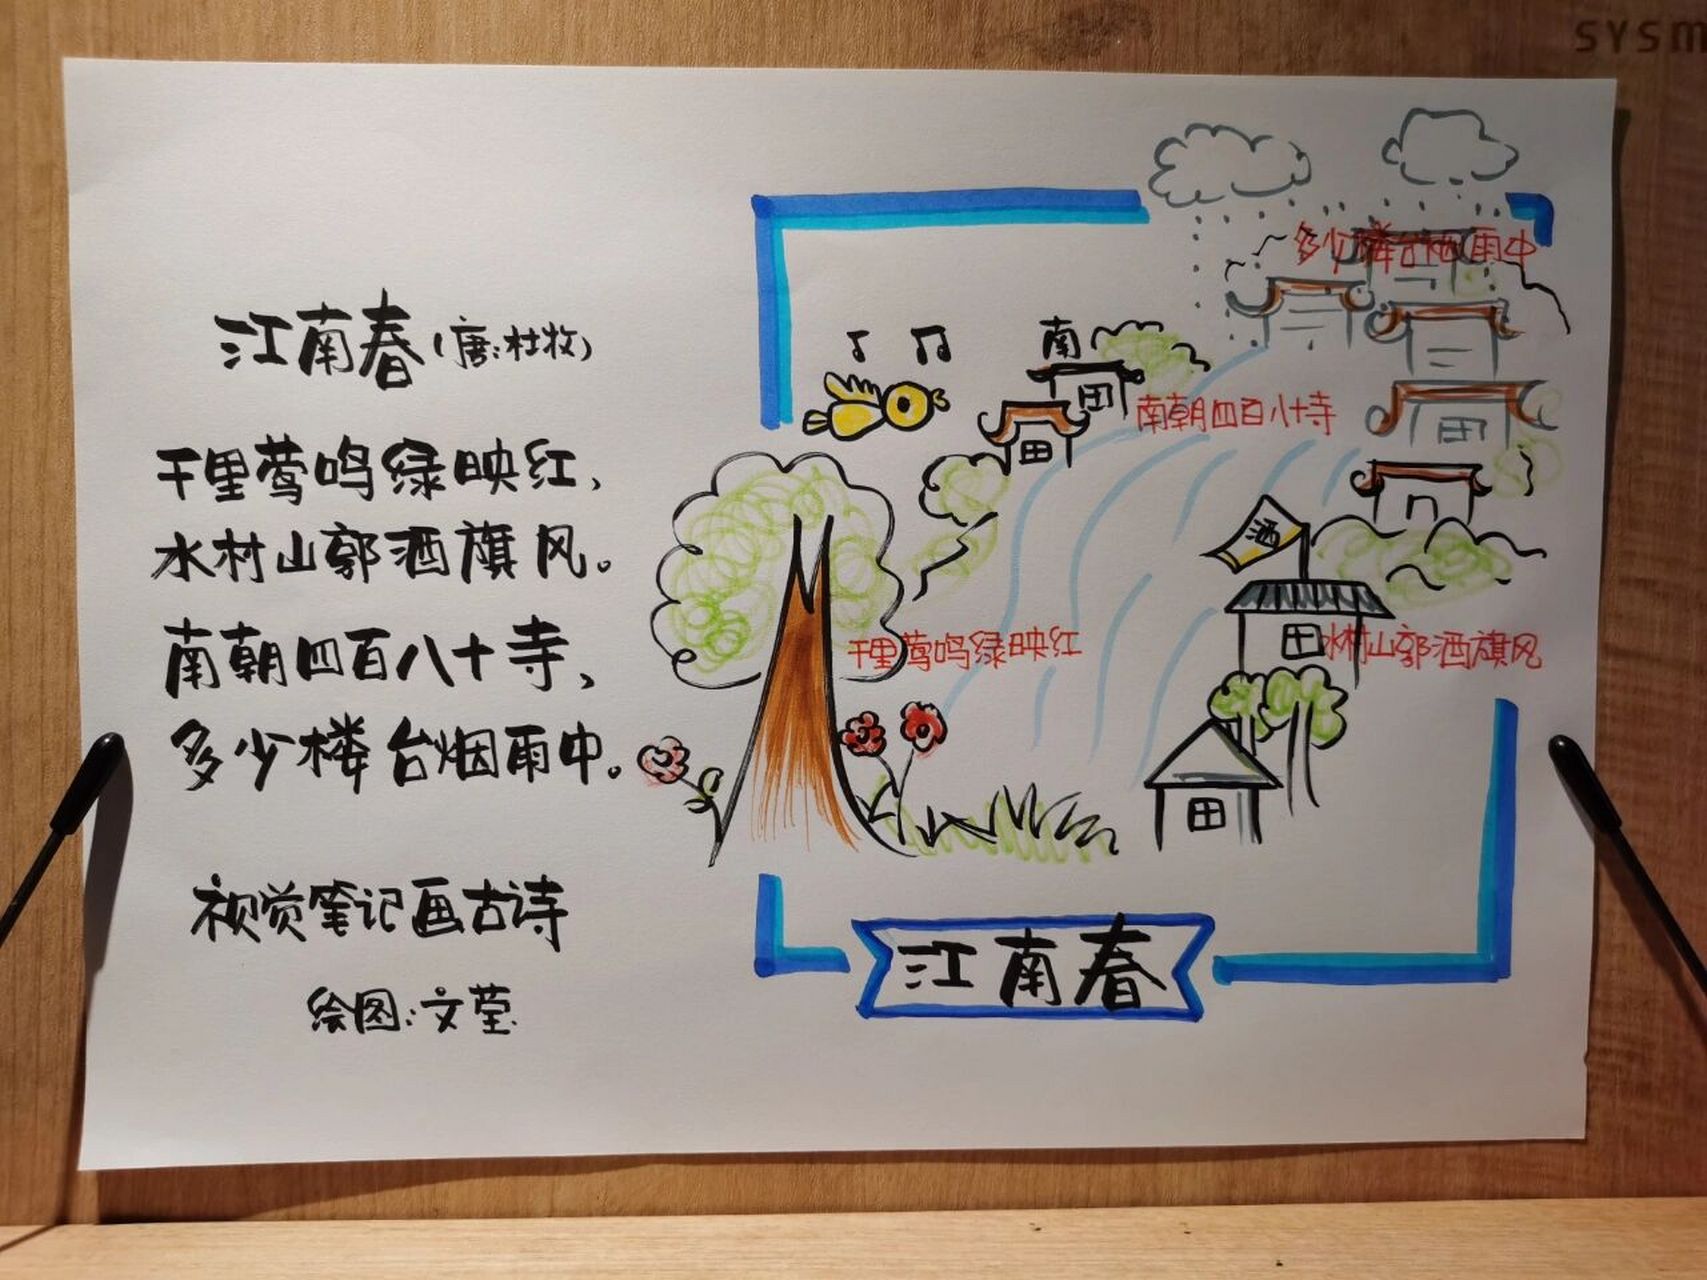 江南春(唐:杜牧)
千里莺鸣绿映红,
水村山郭酒旗风。
南朝四百八十寺,
多少楼台烟雨中。
视觉笔记画古诗
绘图:文莹
多少楼台烟雨中
南
南朝四百八十寺
酒
千里莺鸣绿映红
水村山郭酒旗风
江南春
SYSM